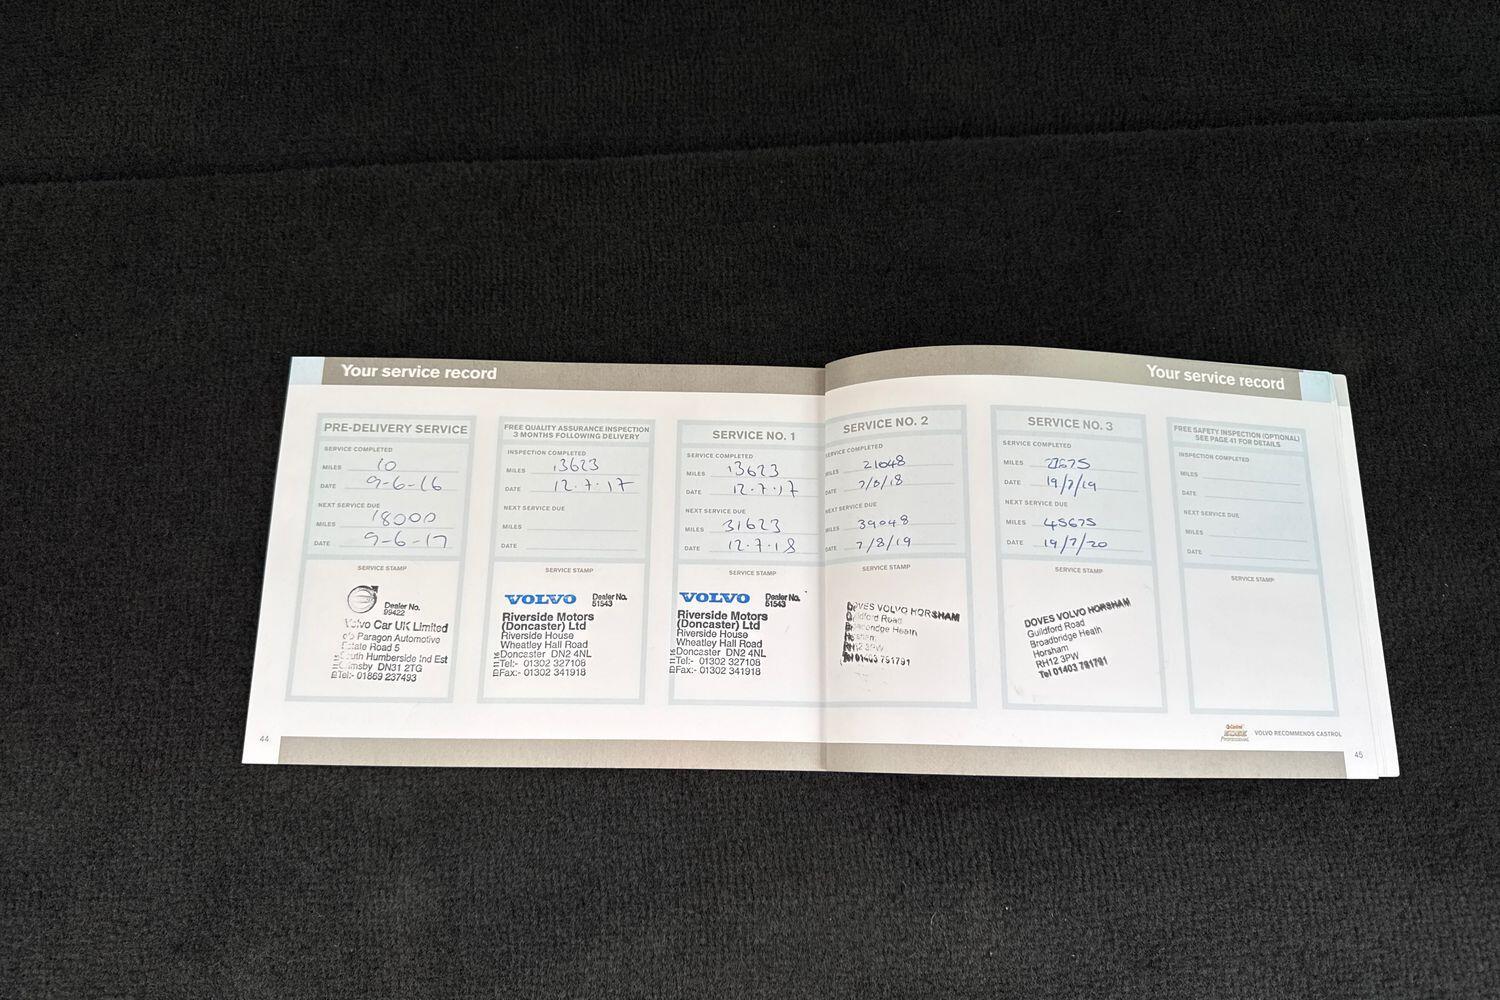 Your service record
PRE-DELIVERY SERVICE
SERVICE COMPLETED
MILES 10
DATE 9-6-16
NEXT SERVICE DUE
MILES 18000
DATE 9-6-17
SERVICE STAMP
Dealer No.
99422
Volvo Car UK Limited
c/o Paragon Automotive
Estate Road 5
South Humberside Ind Est
Grimsby DN31 2TG
Tel:- 01869 237493
FREE QUALITY ASSURANCE INSPECTION
3 MONTHS FOLLOWING DELIVERY
INSPECTION COMPLETED
MILES 13623
DATE 12.7.17
NEXT SERVICE DUE
MILES
DATE
SERVICE STAMP
VOLVO Dealer No.
51543
Riverside Motors
(Doncaster) Ltd
Riverside House
Wheatley Hall Road
Doncaster DN2 4NL
Tel:- 01302 327108
Fax:- 01302 341918
SERVICE NO. 1
SERVICE COMPLETED
MILES 13623
DATE 12.7.17
NEXT SERVICE DUE
MILES 31623
DATE 12.7.18
SERVICE STAMP
VOLVO Dealer No.
51543
Riverside Motors
(Doncaster) Ltd
Riverside House
Wheatley Hall Road
Doncaster DN2 4NL
Tel:- 01302 327108
Fax:- 01302 341918
44
Your service record
SERVICE NO. 2
SERVICE COMPLETED
MILES 21048
DATE 7/8/18
NEXT SERVICE DUE
MILES 39048
DATE 7/8/19
SERVICE STAMP
DOVES VOLVO HORSHAM
Guildford Road
Broadbridge Heath
Horsham
RH12 3PW
Tel 01403 791791
SERVICE NO. 3
SERVICE COMPLETED
MILES
DATE 19/7/19
NEXT SERVICE DUE
MILES 45675
DATE 19/7/20
SERVICE STAMP
DOVES VOLVO HORSHAM
Guildford Road
Broadbridge Heath
Horsham
RH12 3PW
Tel 01403 791791
FREE SAFETY INSPECTION (OPTIONAL)
SEE PAGE 41 FOR DETAILS
INSPECTION COMPLETED
MILES
DATE
NEXT SERVICE DUE
MILES
DATE
SERVICE STAMP
Castrol
EDGE
Professional
VOLVO RECOMMENDS CASTROL
45